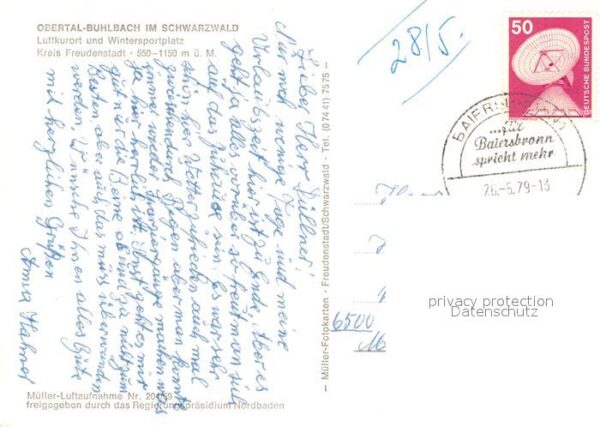 OBERTAL-BUHLBACH IM SCHWARZWALD
Luftkurort und Wintersportplatz
Kreis Freudenstadt · 550–1150 m ü. M.
Lieber Herr Düllner!
Nur noch wenige Tage und meine
Urlaubszeit hier ist zu Ende, aber es
geht ja alles vorüber so freut man sich
auf das zuhause sein. Es war sehr
schön, das Wetter zufrieden auch mal
zwischendurch Regen aber man konnte
immer wieder Spaziergänge machen was
ja hier herrlich ist. Sonst geht es mir
gut nur die Beine ab und zu nicht zum
Besten aber auch das muss überwunden
werden. Wünsche Ihnen alles Gute
mit herzlichen Grüßen
Anna Hahner
Müller-Luftaufnahme Nr. 204/59
freigegeben durch das Regierungspräsidium Nordbaden
— Müller-Fotokarten · Freudenstadt/Schwarzwald · Tel. (07441) 7575 —
28/5.
50
DEUTSCHE BUNDESPOST
BAIERSBRONN
...für
Baiersbronn
spricht mehr
26.-5.79-13
6500
M
privacy protection
Datenschutz